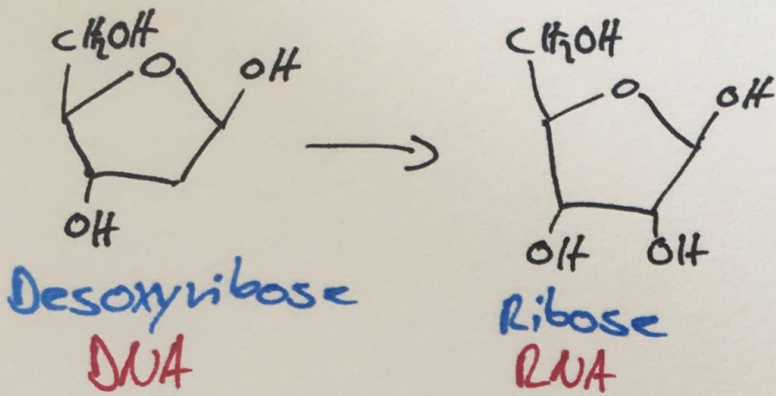 CH₂OH
O
OH
OH
Desoxyribose
DNA
CH₂OH
O
OH
OH
OH
Ribose
RNA